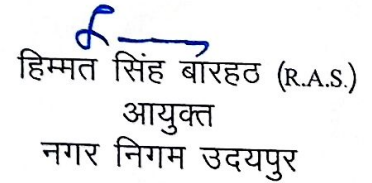 हिम्मत सिंह बारहठ (R.A.S.)
आयुक्त
नगर निगम उदयपुर